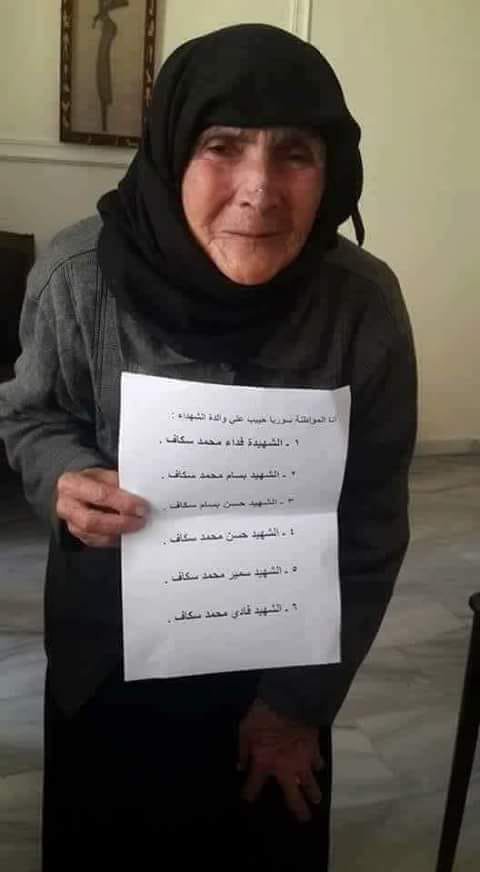 انا المواطنة سوريا حبيب علي والدة الشهداء :
١ ـ الشهيدة فداء محمد سكاف .
٢ ـ الشهيد بسام محمد سكاف .
٣ ـ الشهيد حسن بسام سكاف .
٤ ـ الشهيد حسن محمد سكاف .
٥ ـ الشهيد سمير محمد سكاف .
٦ ـ الشهيد فادي محمد سكاف .